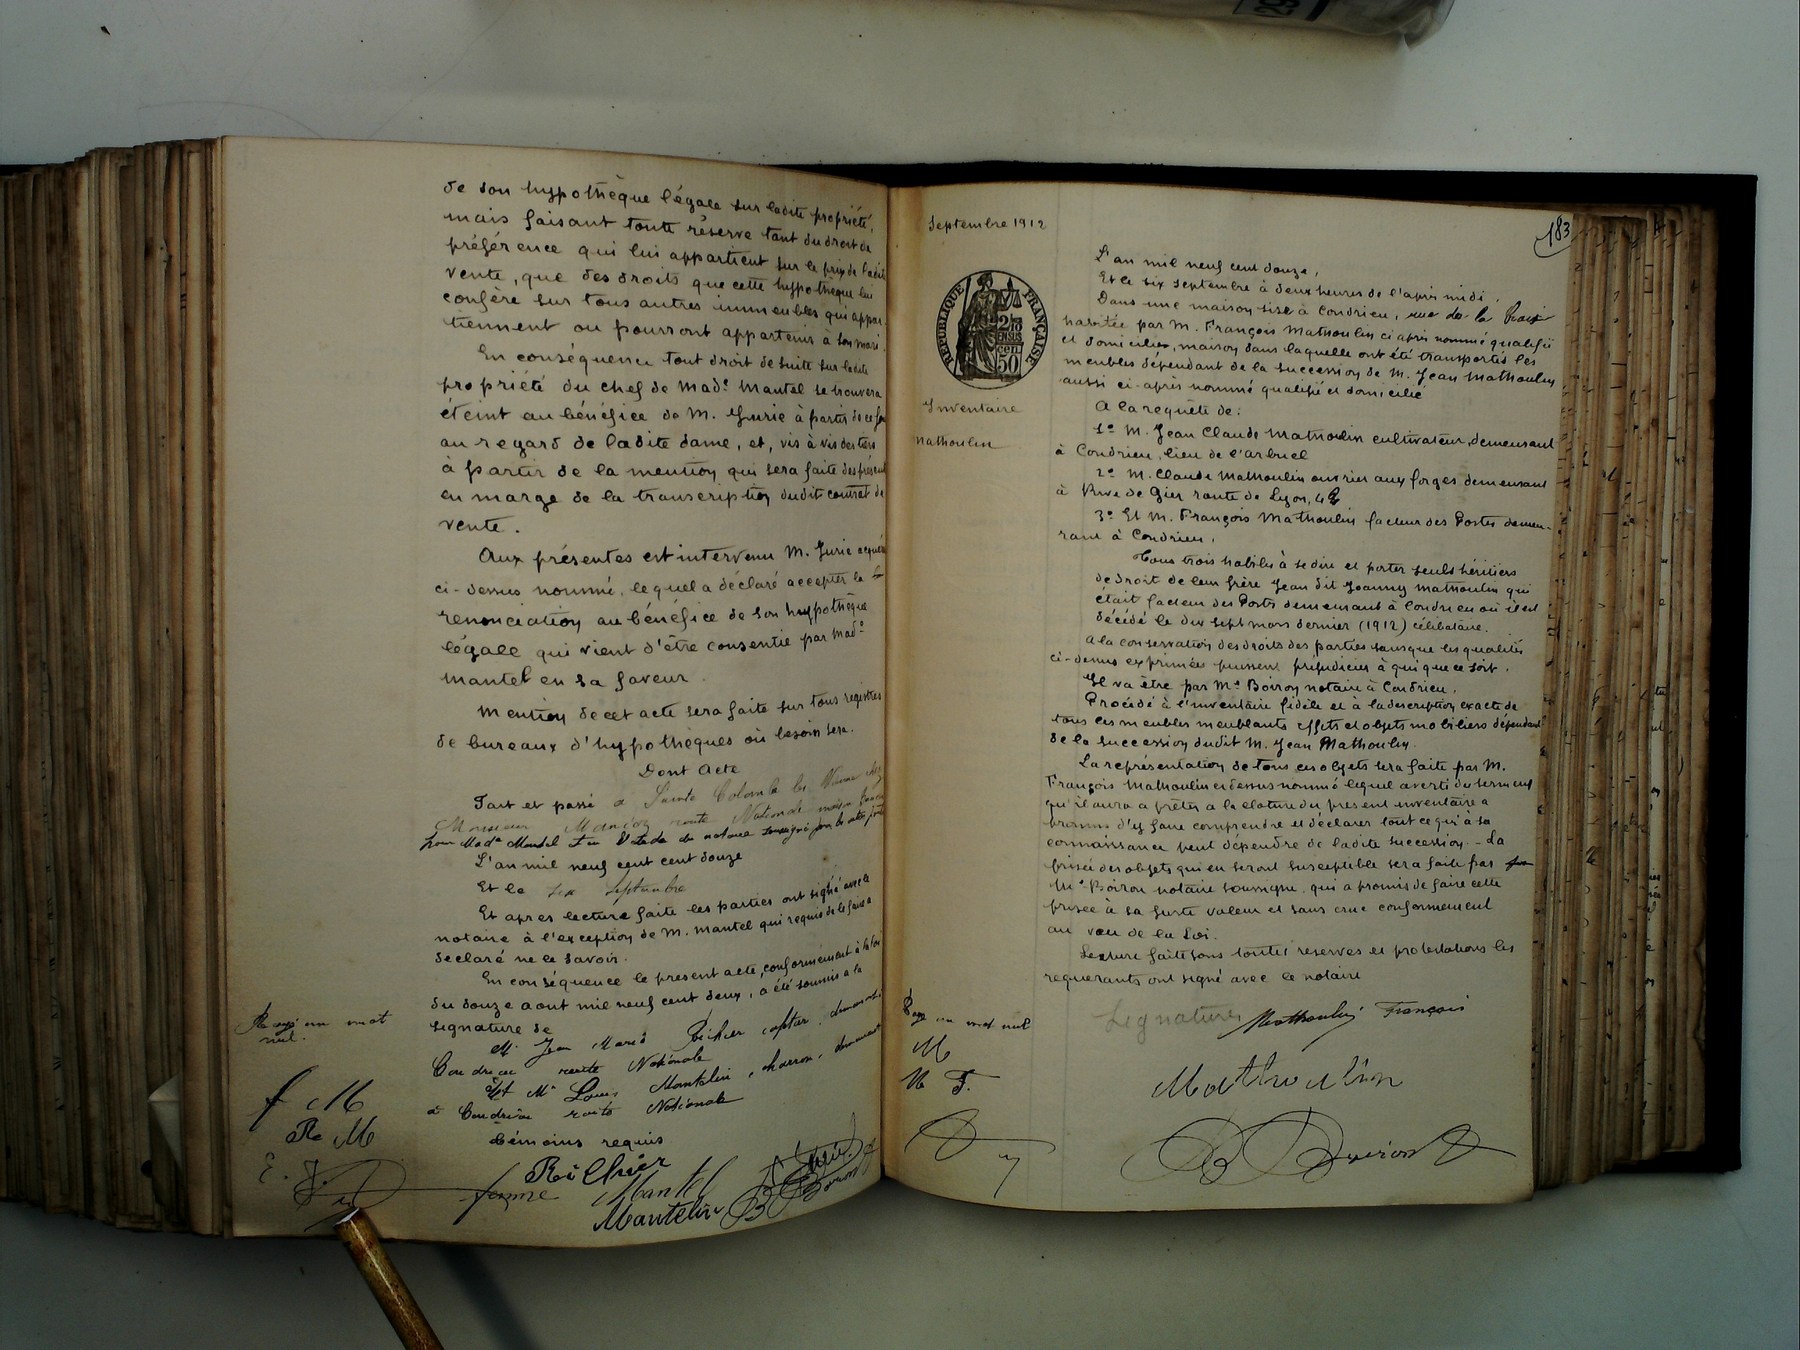 de son hypothèque légale sur ladite propriété,
mais faisant toute réserve tant du droit de
préférence qui lui appartient sur le prix de ladite
vente, que des droits que cette hypothèque lui
confère sur tous autres immeubles qui appar-
tiennent ou pourront appartenir à son mari.
En conséquence tout droit de suite sur ladite
propriété du chef de Made Mantel se trouvera
éteint au bénéfice de M. Jurie à partir de ce jour
au regard de ladite dame, et, vis à vis des tiers
à partir de la mention qui sera faite des présentes
en marge de la transcription dudit contrat de
vente.
Aux présentes est intervenu M. Jurie acquéreur
ci-dessus nommé, lequel a déclaré accepter la
renonciation au bénéfice de son hypothèque
légale qui vient d'être consentie par Made
Mantel en sa faveur.
Mention de cet acte sera faite sur tous registres
de bureaux d'hypothèques où besoin sera.
Dont Acte
Fait et passé à Sainte Colombe les Vienne chez
Monsieur route Nationale
pour Made Mantel et en l'étude du notaire soussigné pour les autres parties
L'an mil neuf cent cent douze
Et le six septembre
Et après lecture faite les parties ont signé avec le
notaire à l'exception de M. Mantel qui requis de le faire a
declaré ne le savoir.
En conséquence le present acte, conformément à la loi
du douze aout mil neuf cent deux, a été soumis a la
signature de
Mr Jean Marie Richier demeurant
Condrieu route Nationale
Et Mr Louis Mantelin, charron, demeurant
à Condrieu route Nationale
témoins requis
Rayé un mot
nul.
f M
R M
E. J.
Richier
femme Mantel
Mantelin
Jurie
Boiron
183
Septembre 1912
REPUBLIQUE FRANÇAISE
2/10
EN SUS
cen
50
Inventaire
Mathoulin
L'an mil neuf cent douze,
Et le six septembre à deux heures de l'après midi,
Dans une maison sise à Condrieu, rue de la
habitée par M. François Mathoulin ci après nommé qualifié
et domicilié, maison dans laquelle ont été transportés les
meubles dépendant de la succession de M. Jean Mathoulin
aussi ci-après nommé qualifié et domicilié
A la requête de:
1e M. Jean Claude Mathoulin cultivateur, demeurant
à Condrieu, lieu de l'Arbuel
2e M. Claude Mathoulin ouvrier aux forges demeurant
à Rive de Gier route de Lyon,
3e Et M. François Mathoulin facteur des Postes demeu-
rant à Condrieu.
Tous trois habiles à se dire et porter seuls héritiers
de droit de leur frère Jean dit Joanny Mathoulin qui
était facteur des Postes demeurant à Condrieu où il est
décédé le dix sept mars dernier (1912) célibataire.
A la conservation des droits des parties sans que les qualités
ci-dessus exprimées puissent préjudicier à qui que ce soit.
Il va être par Me Boiron notaire à Condrieu.
Procédé à l'inventaire fidèle et à la description exacte de
tous les meubles meublants effets et objets mobiliers dépendant
de la succession dudit M. Jean Mathoulin.
La représentation de tous ces objets sera faite par M.
François Mathoulin ci dessus nommé lequel averti du serment
qu'il aura a prêter a la cloture du present inventaire a
promis d'y faire comprendre et déclarer tout ce qu'à sa
connaissance peut dépendre de ladite succession. - La
prisée des objets qui en seront susceptible sera faite par
Me Boiron notaire soussigné, qui a promis de faire cette
prisée à sa juste valeur et sans crue conformement
au vœu de la Loi.
Lecture faite sous toutes reserves et protestations les
requerants ont signé avec le notaire
Signatures
Mathoulin François
Mathoulin
Boiron
Rayé un mot nul
M
M F.